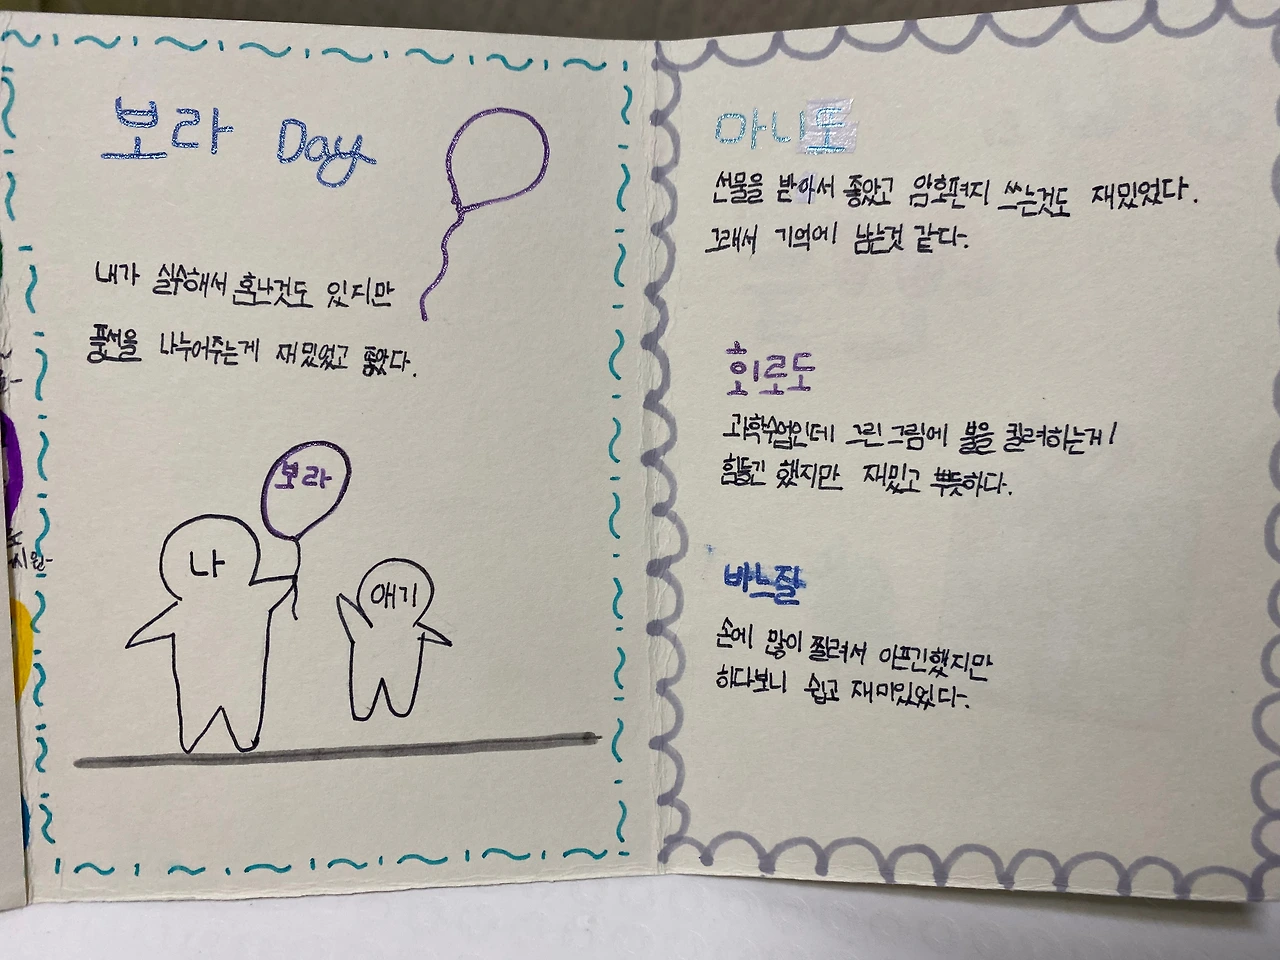 보라 Day
내가 실수해서 혼나것도 있지만
풍선을 나누어주는게 재밌었고 좋았다.
보라
나
애기
마니또
선물을 받아서 좋았고 암호편지 쓰는것도 재밌었다.
그래서 기억에 남는것 같다.
회로도
과학수업인데 그린 그림에 불을 킬려하는게
힘들긴 했지만 재밌고 뿌듯하다.
바느질
손에 많이 찔려서 아프긴했지만
하다보니 쉽고 재미있었다.